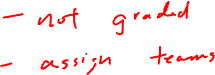 - not graded
- assign teams